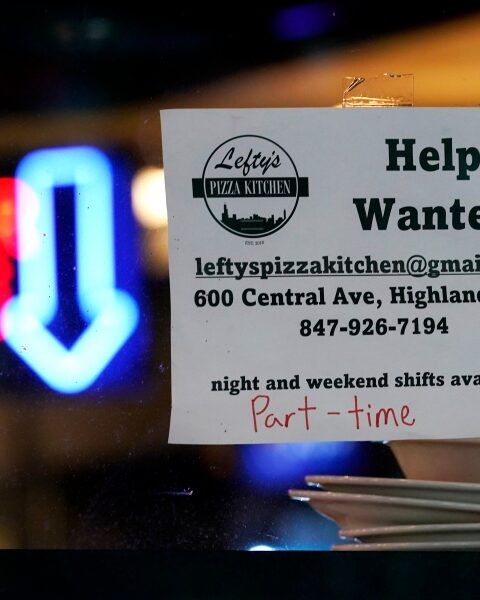 Lefty's
PIZZA KITCHEN
Help
Wante
leftyspizzakitchen@gmai
600 Central Ave, Highlan
847-926-7194
night and weekend shifts ava
Part-time